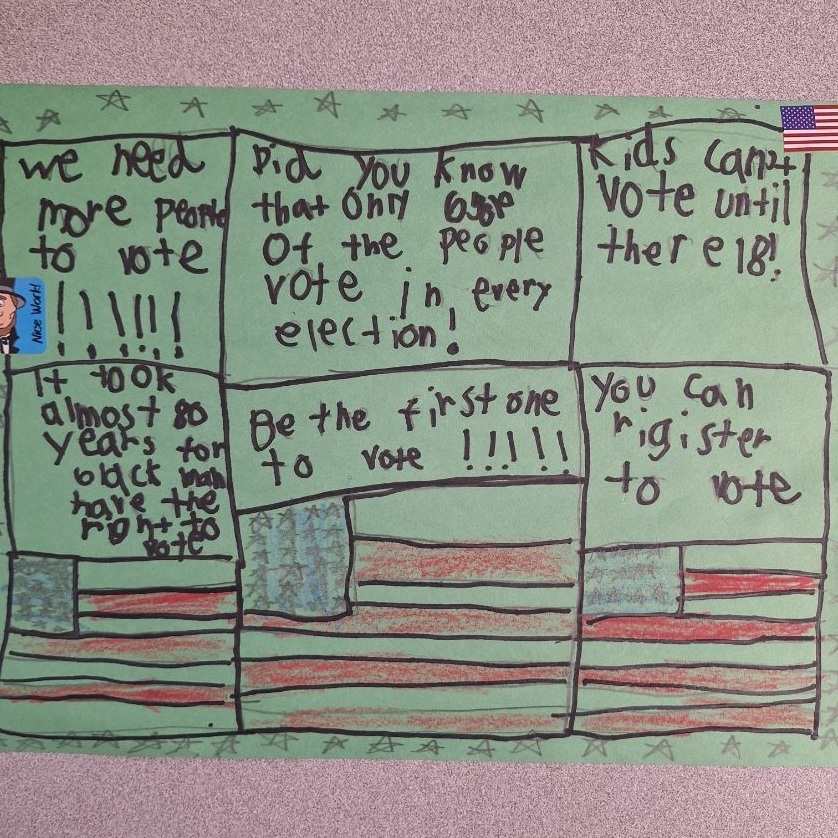 we need
more people
to vote
!!!!!!
Nice Work!
Did you know
that only
of the people
vote in every
election!
Kids can't
vote until
there 18!
It took
almost 80
years for
black man
have the
right to
vote
Be the first one
to vote !!!!!
you can
rigister
to vote